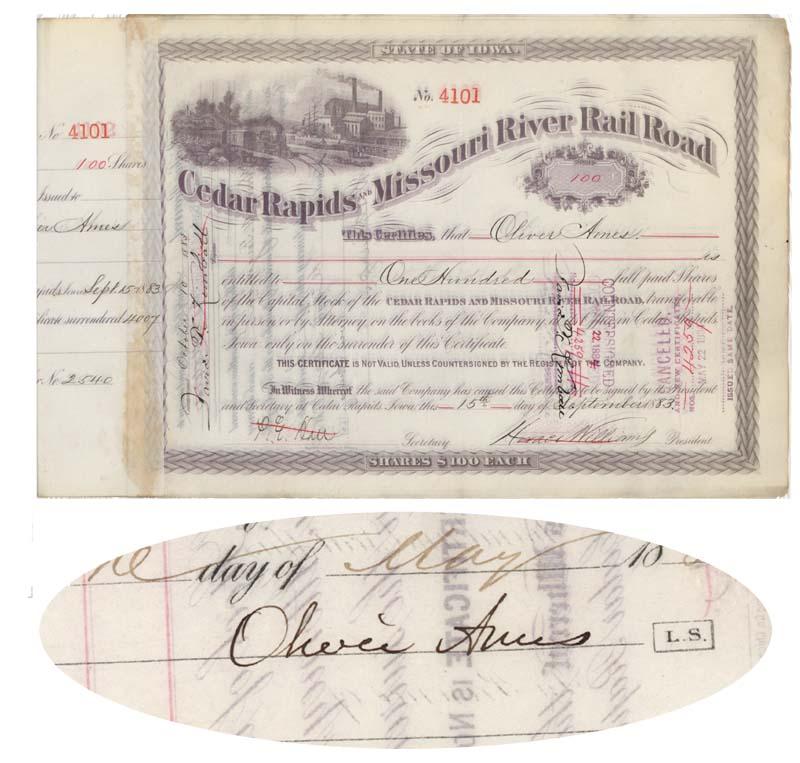 STATE OF IOWA.
No. 4101
No 4101
100 Shares
Issued to
Ames
Sept 15 1883
surrendered 4007
No 2540
Cedar Rapids AND Missouri River Rail Road
100
This Certifies, that Oliver Ames. is
entitled to One Hundred full paid Shares
of the Capital Stock of the CEDAR RAPIDS AND MISSOURI RIVER RAIL ROAD, transferable
in person or by Attorney on the books of the Company, at Office in Cedar Rapids
Iowa only on the surrender of this Certificate
THIS CERTIFICATE IS NOT VALID, UNLESS COUNTERSIGNED BY THE REGISTRAR OF THE COMPANY.
In Witness Whereof the said Company has caused this Certificate to be signed by its President
and Secretary at Cedar Rapids, Iowa, this 15th day of September 1883
Secretary Horace Williams President
SHARES $100 EACH
COUNTERSIGNED
CANCELLED,
AND NEW CERTIFICATE
NOS.
MAY 22
ISSUED SAME DATE.
day of May 18
Oliver Ames L.S.